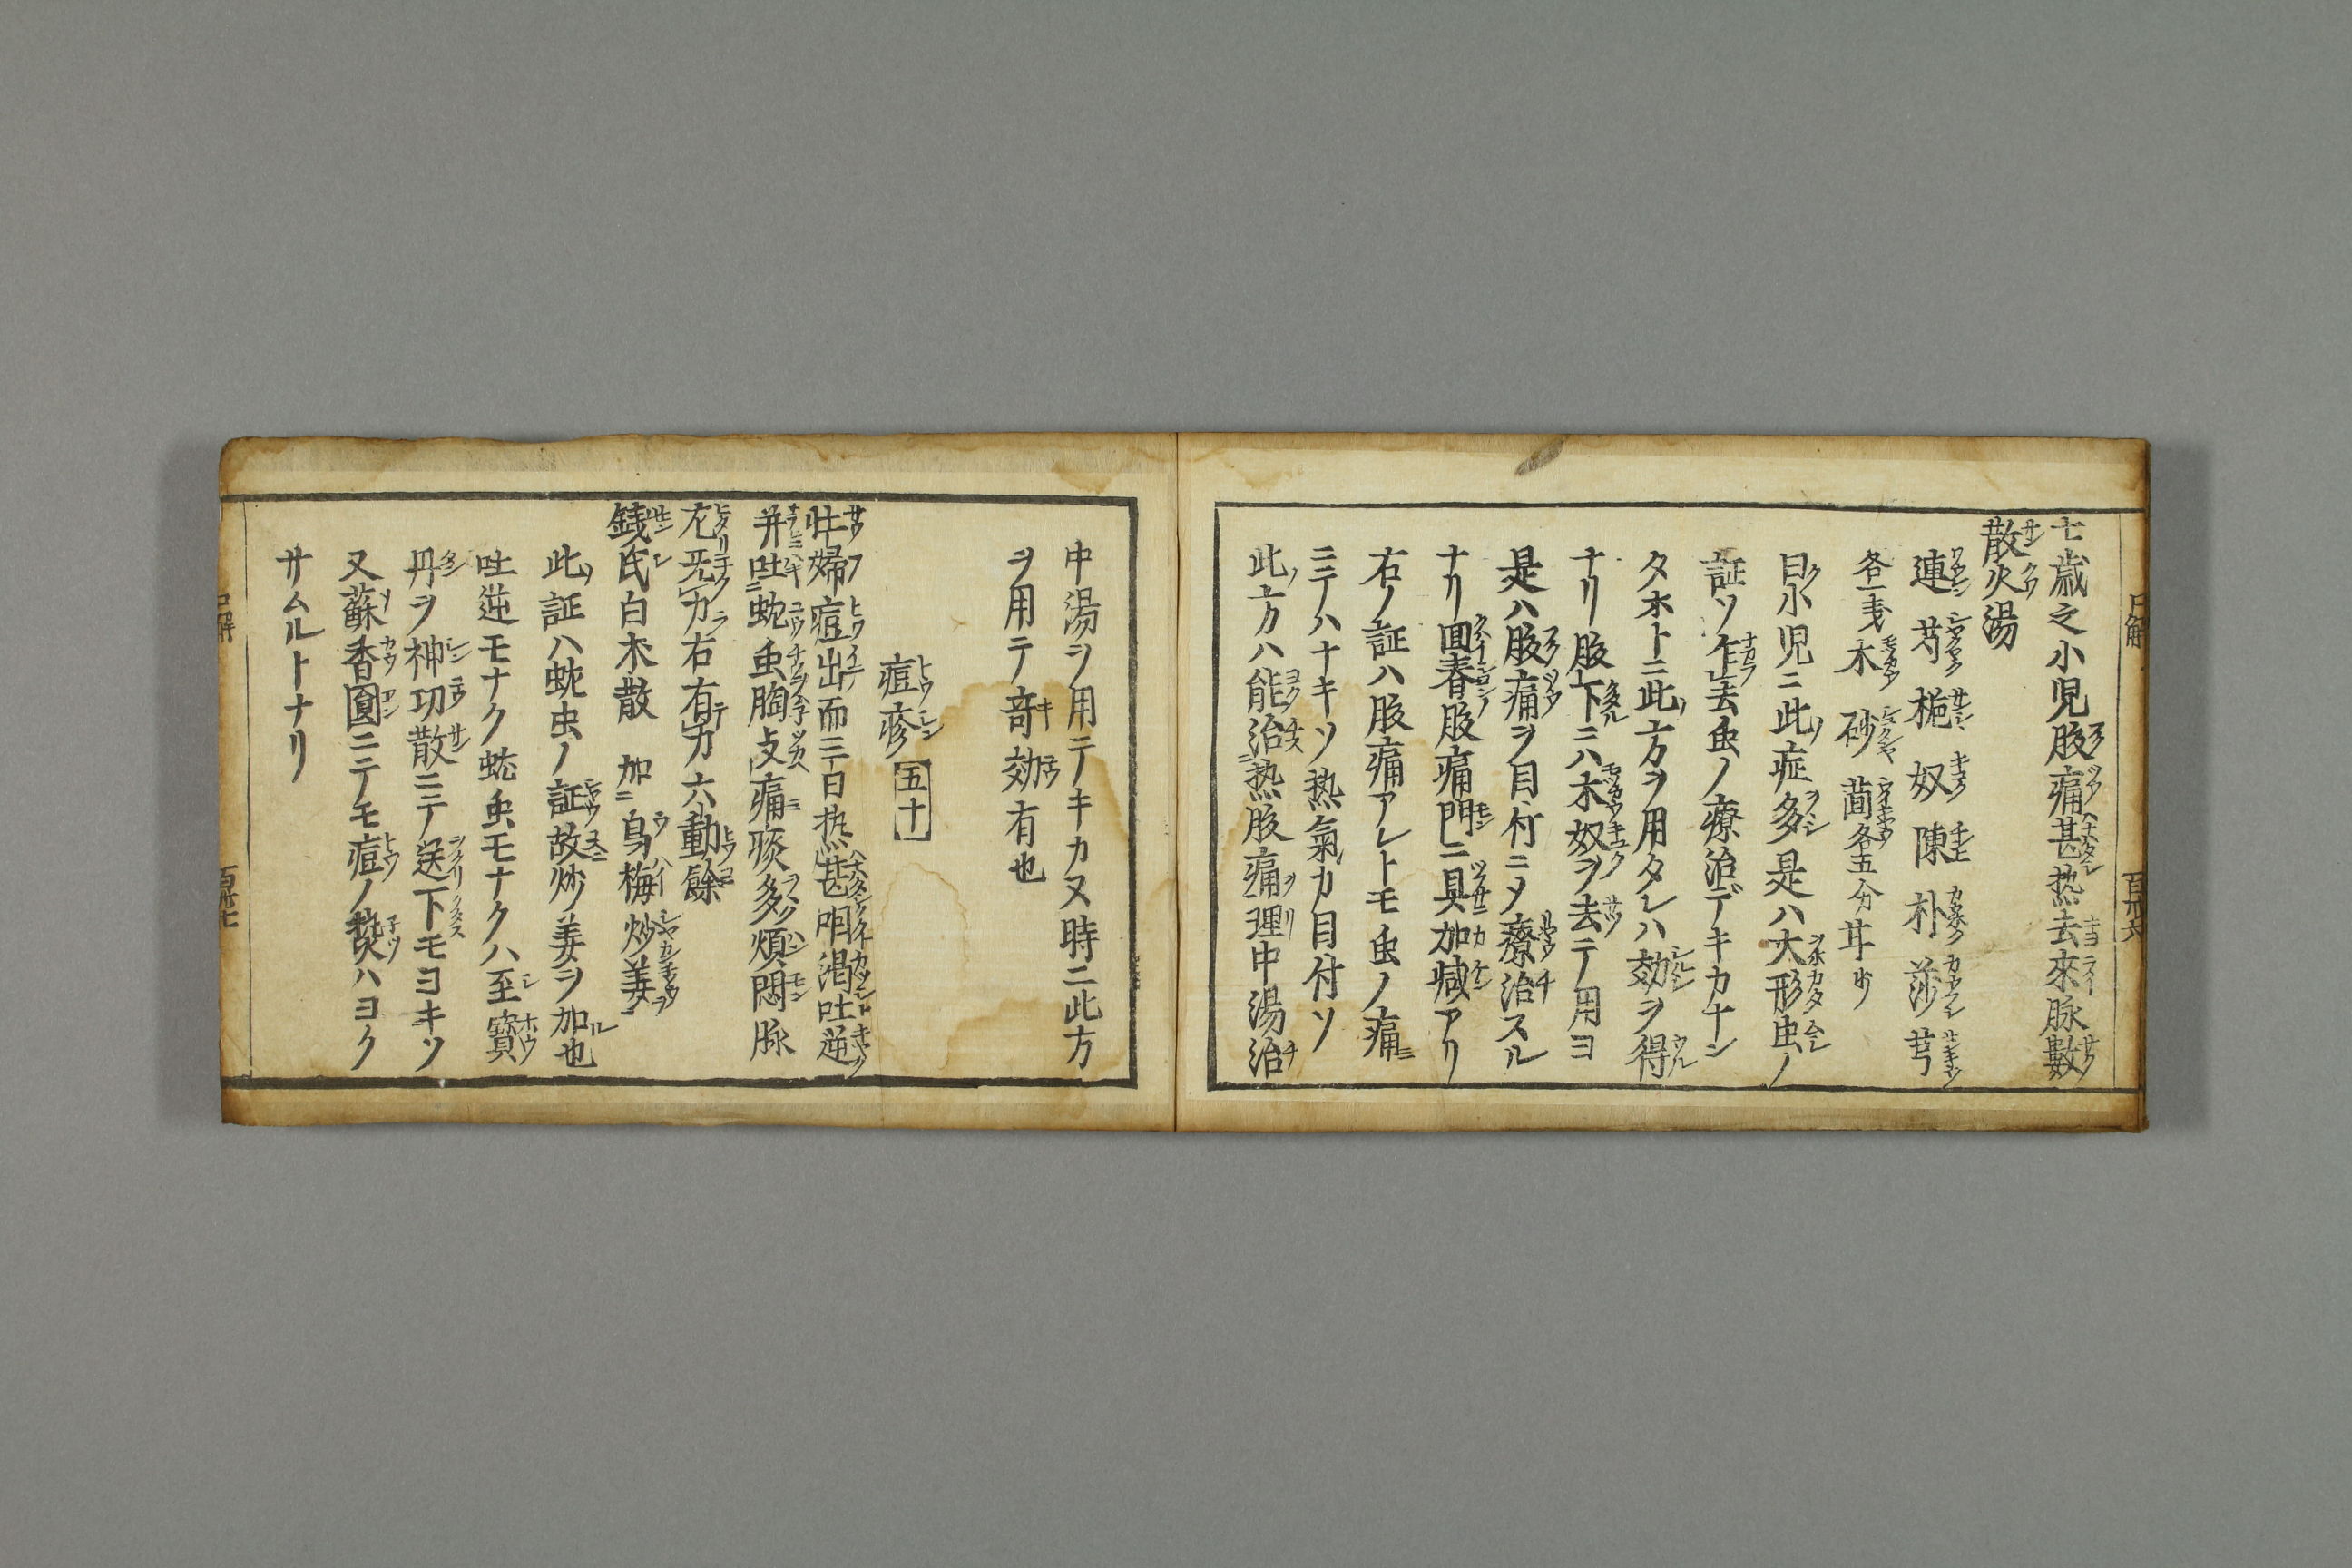 七歳之小児股痛甚热去來脉數
散火湯
連 芍 梔 奴 陳 朴 莎 芎
各一戔木 砂 茴各五分甘少
曰小児ニ此症多是ハ大形虫ノ
証ソ乍去虫ノ療治デキカナン
タホトニ此方ヲ用タレハ効ヲ得
ナリ股上下ニハ木奴ヲ去テ用ヨ
是ハ股痛ヲ目付ニメ療治スル
ナリ回春股痛門ニ具加减アリ
右ノ証ハ股痛アレトモ虫ノ痛
ニテハナキソ热氣カ目付ソ
此方ハ能治热股痛理中湯治
中湯ヲ用テキカヌ時ニ此方
ヲ用テ竒効有也
痘疹 五十
壮婦痘出而三日热甚咽渇吐逆
并吐蚘虫胸支痛痰多煩悶脉
左旡力右有力六動餘
錢氏白术散 加烏梅炒姜
此証ハ蚘虫ノ証故炒姜ヲ加也
吐逆モナク蚘虫モナクハ至寳
丹ヲ神功散ニテ送下モヨキソ
又蘇香圓ニテモ痘ノ热ハヨク
サムルトナリ